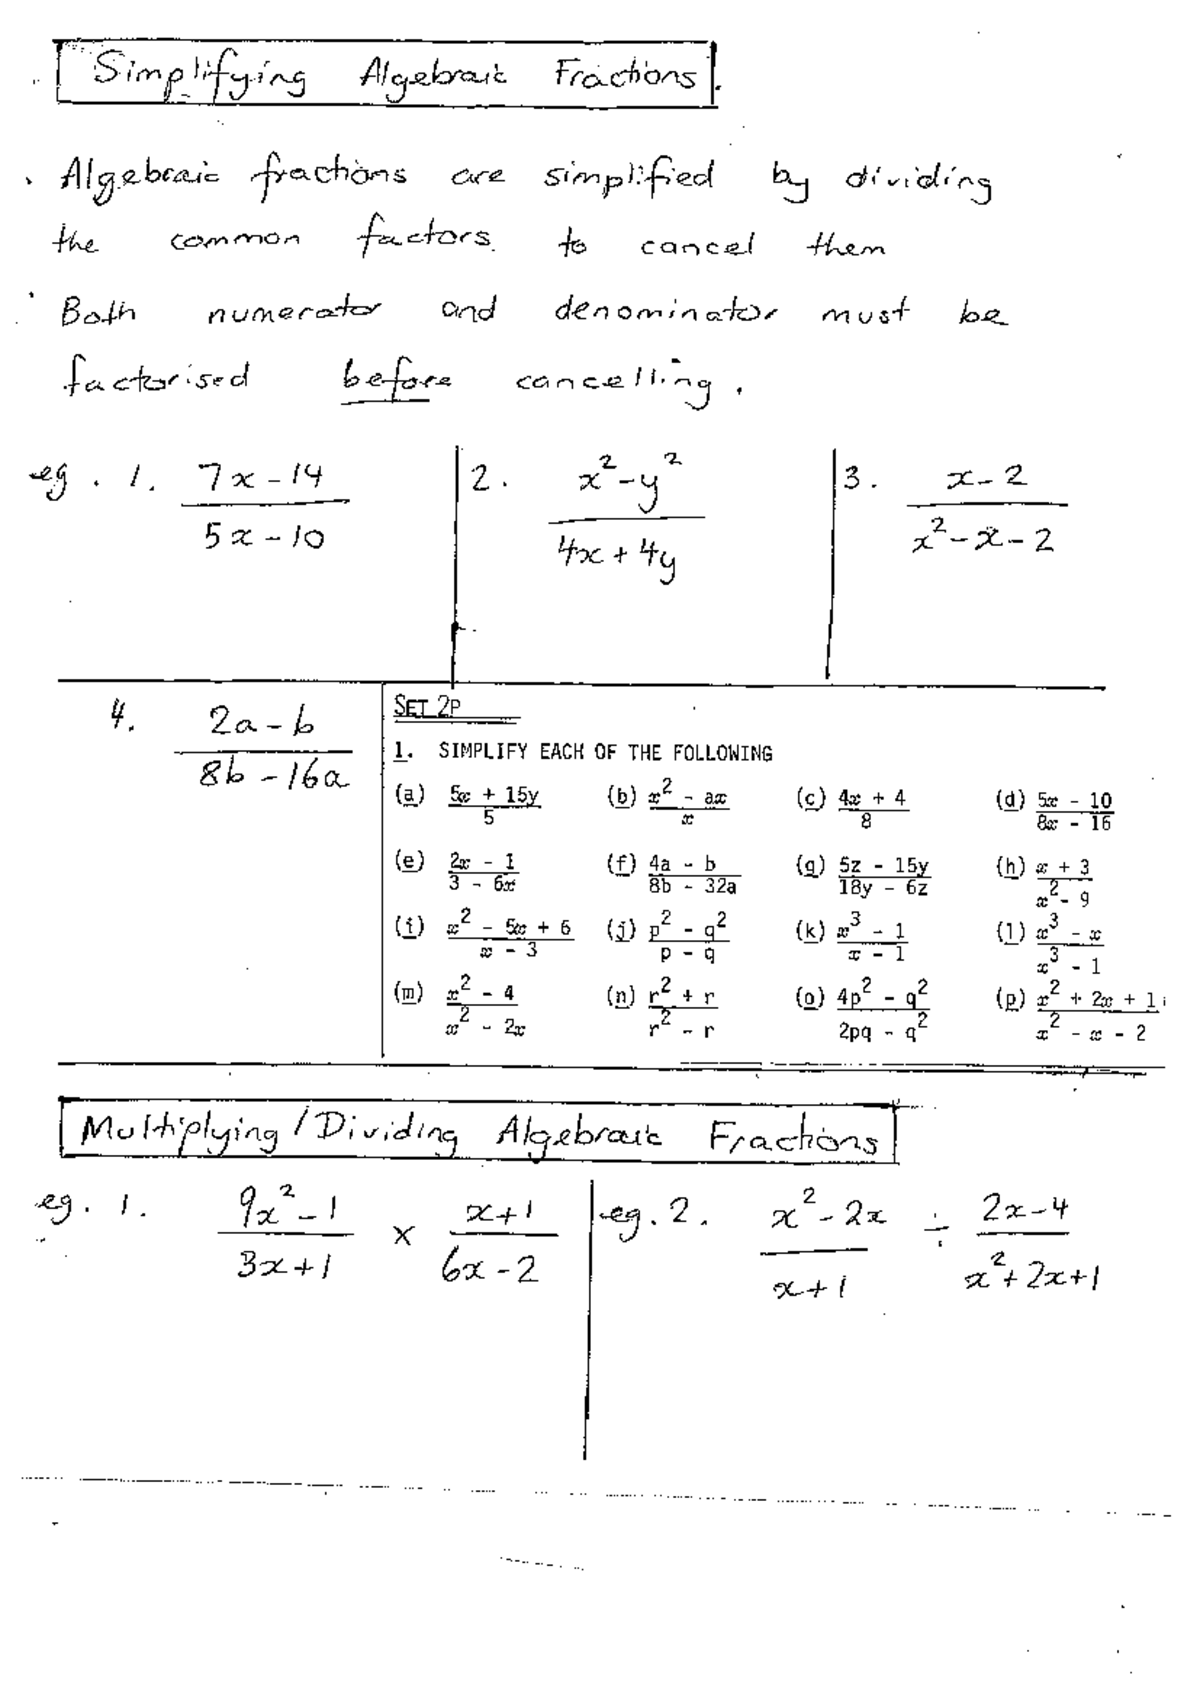 Simplifying Algebraic Fractions.
. Algebraic fractions are simplified by dividing
the common factors. to cancel them
. Both numerator and denominator must be
factorised before cancelling.
eg. 1. (7x - 14)/(5x - 10) 2. (x² - y²)/(4x + 4y) 3. (x - 2)/(x² - x - 2)
4. (2a - b)/(8b - 16a)
SET 2P
1. SIMPLIFY EACH OF THE FOLLOWING
(a) (5x + 15y)/5 (b) (x² - ax)/x (c) (4x + 4)/8 (d) (5x - 10)/(8x - 16)
(e) (2x - 1)/(3 - 6x) (f) (4a - b)/(8b - 32a) (g) (5z - 15y)/(18y - 6z) (h) (x + 3)/(x² - 9)
(i) (x² - 5x + 6)/(x - 3) (j) (p² - q²)/(p - q) (k) (x³ - 1)/(x - 1) (l) (x³ - x)/(x³ - 1)
(m) (x² - 4)/(x² - 2x) (n) (r² + r)/(r² - r) (o) (4p² - q²)/(2pq - q²) (p) (x² + 2x + 1)/(x² - x - 2)
Multiplying / Dividing Algebraic Fractions
eg. 1. (9x² - 1)/(3x + 1) × (x + 1)/(6x - 2) eg. 2. (x² - 2x)/(x + 1) ÷ (2x - 4)/(x² + 2x + 1)